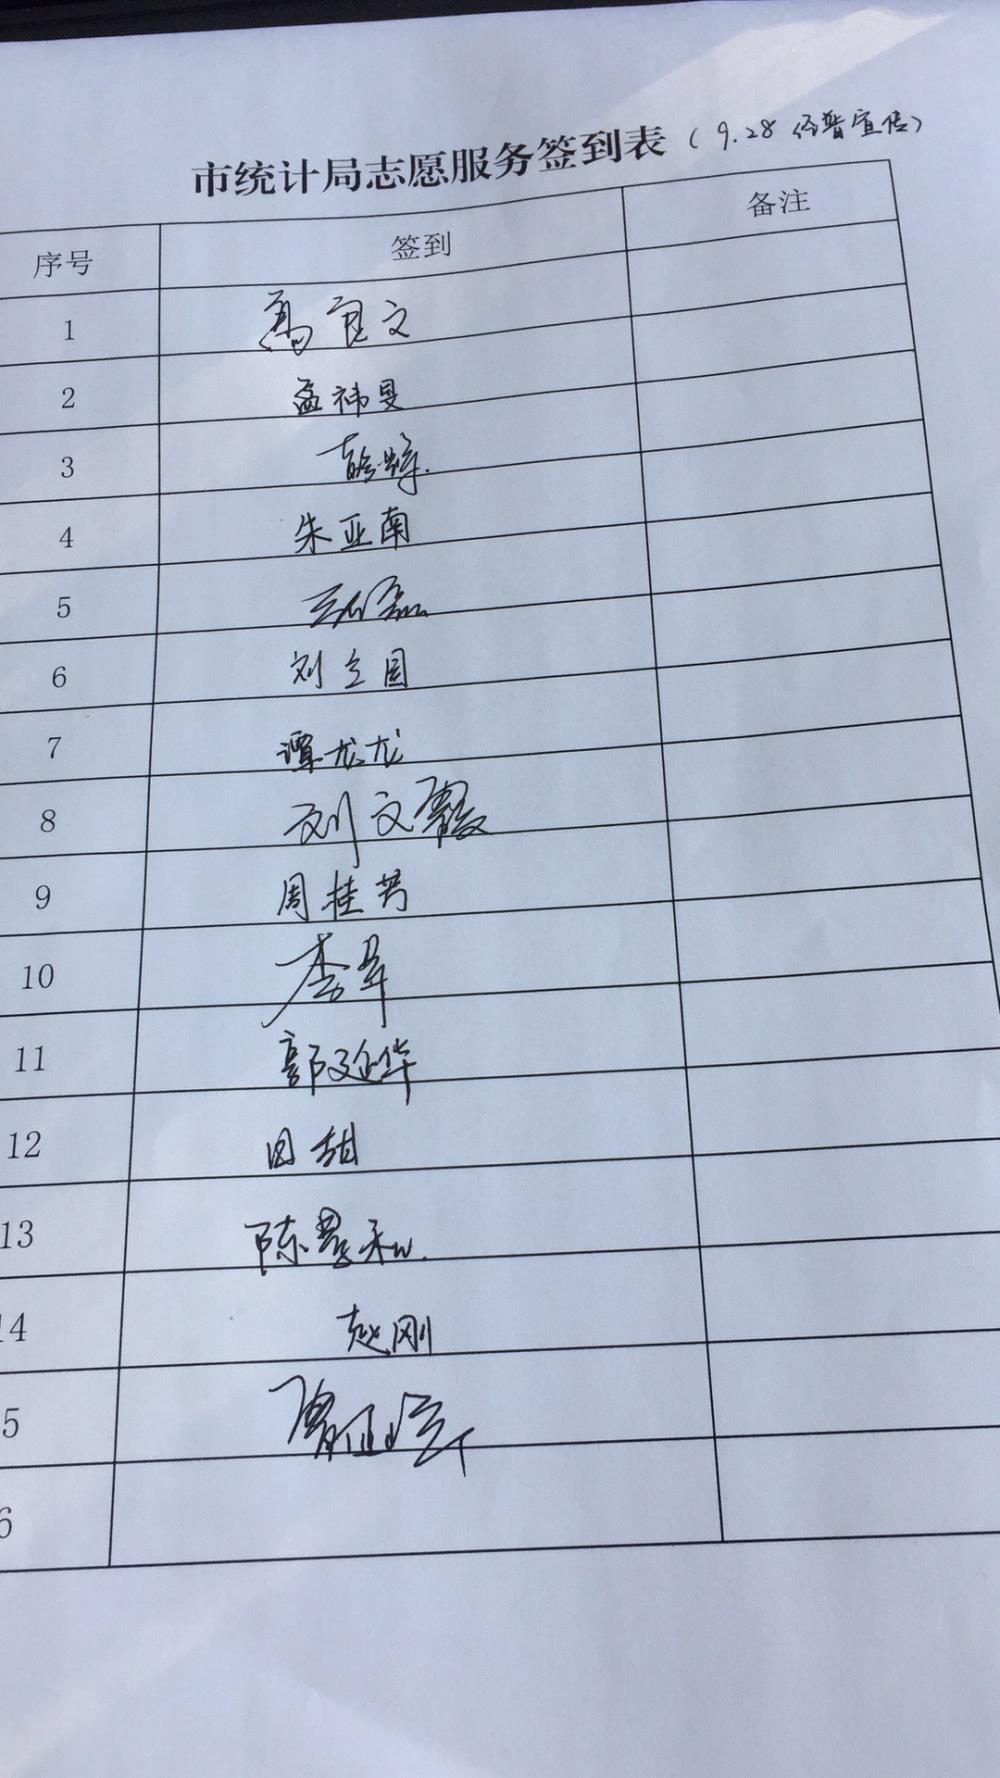 市统计局志愿服务签到表（9.28 经普宣传）
序号 签到 备注
1 文
2 孟祎旻
3
4 朱亚南
5 磊
6 刘立国
7 谭龙龙
8 刘文霞
9 周桂芳
10 李军
11 郭延华
12 田甜
13 陈
14 赵刚
5
6